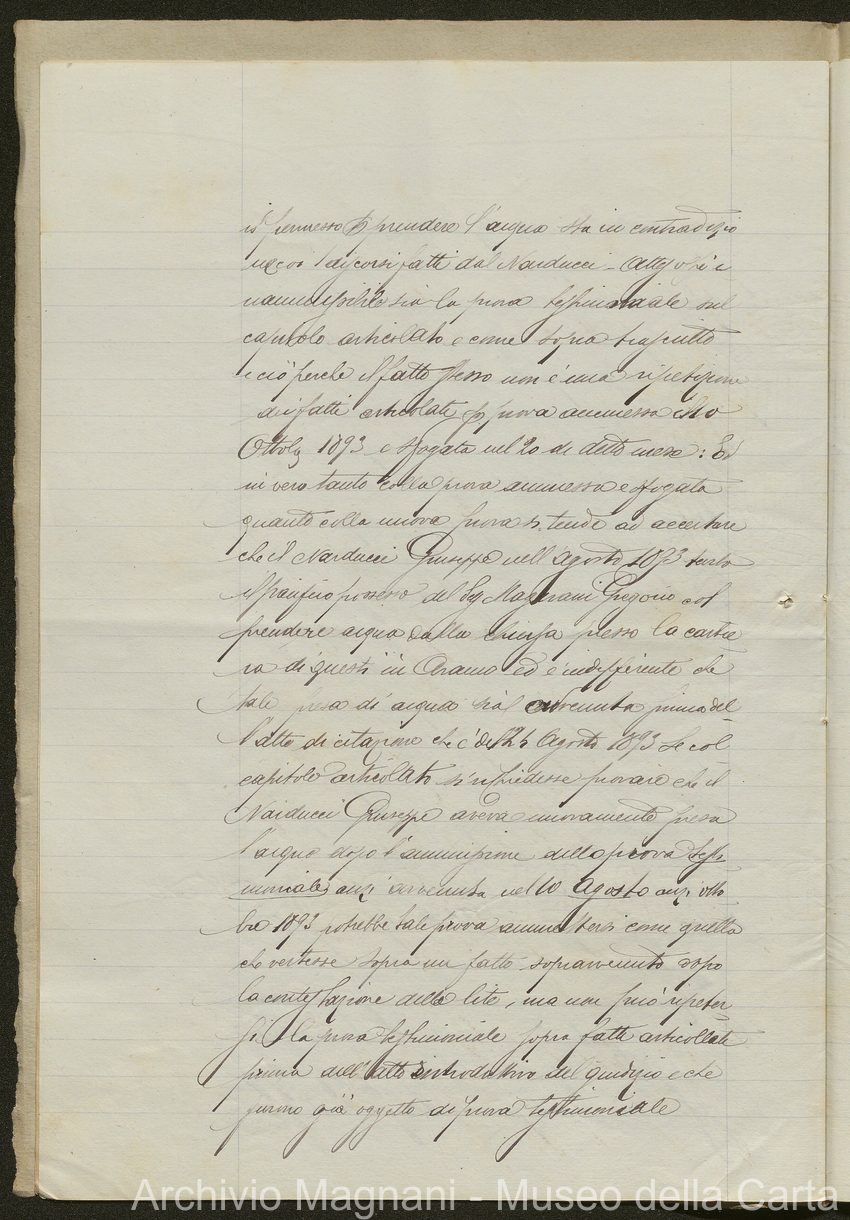 il permesso p prendere l'acqua sta in contradizio
ne coi discorsi fatti dal Narducci - Attesochè i
nammissibile sia la prova testimoniale sul
capitolo articolato e come sopra trascritto
e ciò perchè il fatto stesso non è una ripetizione
dei fatti articolati p prova ammessa il 10
Ottobre 1893 e sfogata nel 20 di detto mese: Ed
in vero tanto colla prova ammessa e sfogata
quanto colla nuova prova si tende ad accertare
che il Narducci Giuseppe nell'agosto 1893 turbò
il pacifico possesso del Sig Magnani Giorgio col
prendere acqua dalla chiusa presso la cartie
ra di questi in Aramo ed è indifferente che
tale presa di acqua sia avvenuta prima del
l'atto di citazione che è del 24 Agosto 1893 Se col
capitolo articolato si richiedesse provare che il
Narducci Giuseppe aveva nuovamente presa
l'acqua dopo l'ammissione della prova testi
moniale anzi avvenuta nel 10 Agosto anzi otto
bre 1893 potrebbe tale prova ammettersi come quella
che vertesse sopra un fatto sopravvenuto dopo
la contestazione della lite, ma non può ripeter
si la prova testimoniale sopra fatti articollati
prima dell'atto introduttivo del giudizio e che
furono già oggetto di prova testimoniale
Archivio Magnani - Museo della Carta